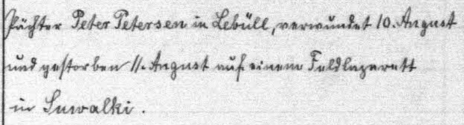 Pächter Peter Petersen in Lebüll, verwundet 10. August
und gestorben 11. August auf einem Feldlazarett
in Suwalki.